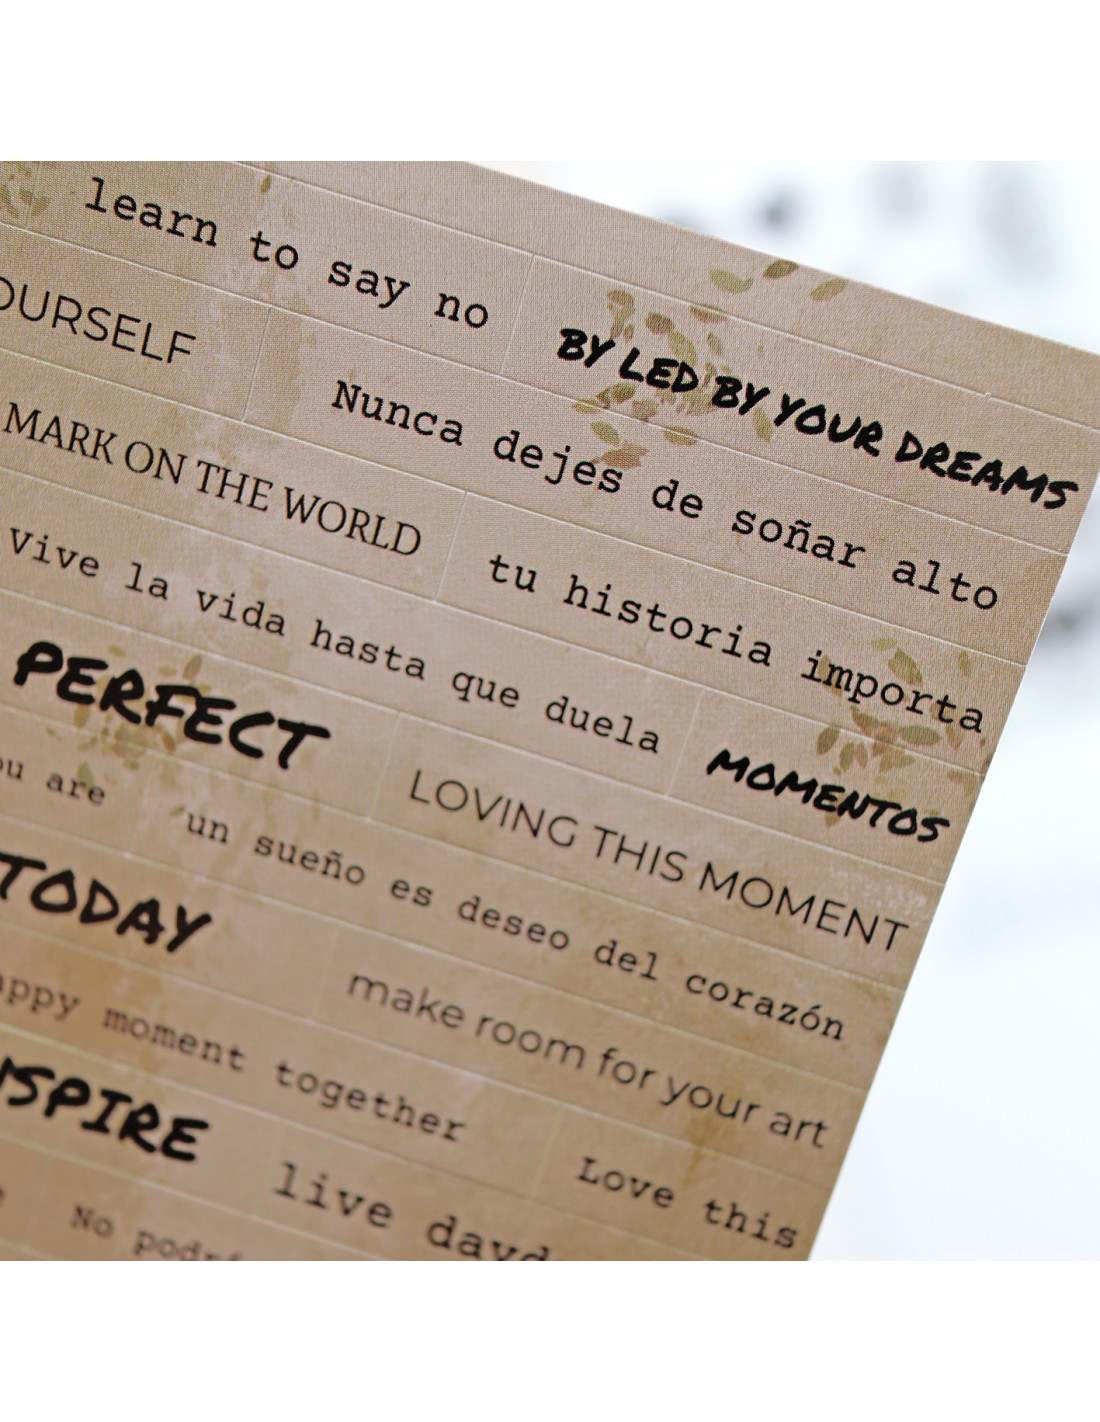 learn to say no BY LED BY YOUR DREAMS
OURSELF Nunca dejes de soñar alto
MARK ON THE WORLD tu historia importa
vive la vida hasta que duela MOMENTOS
PERFECT LOVING THIS MOMENT
ou are un sueño es deseo del corazón
TODAY make room for your art
appy moment together Love this
NSPIRE live dayd
No podrí